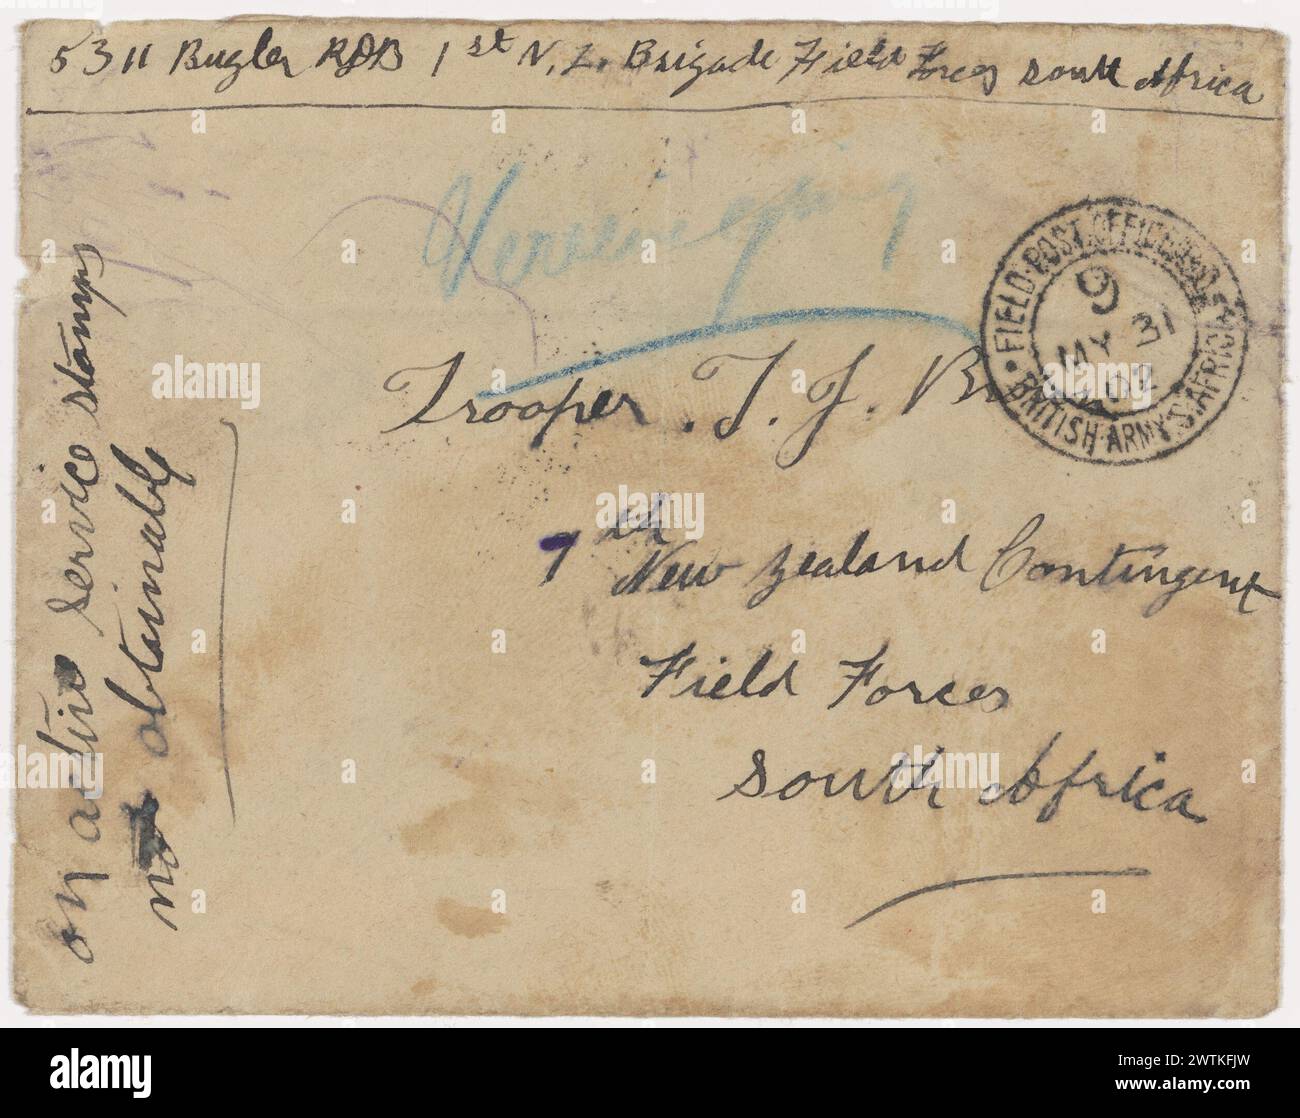 5311 Bugler RDB 1st N.Z. Brigade Field Forces South Africa
Vereeniging
FIELD POST OFFICE
BRITISH ARMY S. AFRICA
9
MY 31
02
Trooper. T. J.
7th New Zealand Contingent
Field Forces
South Africa
on active service stamps
not obtainable
alamy
Image ID: 2WTKFJW
www.alamy.com